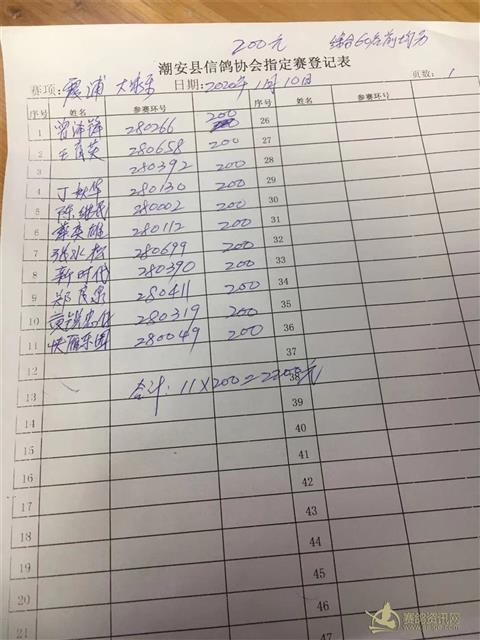 200元 综合60名前均分
潮安县信鸽协会指定赛登记表
赛项: 霞浦 日期: 2020年1月10日 页数: 1
序号 姓名 参赛环号 序号 姓名 参赛环号
1 280266 200 26
2 280658 200 27
3 280392 200 28
4 280130 200 29
5 280002 200 30
6 280112 200 31
7 张水松 280699 200 32
8 新时代 280390 200 33
9 280411 200 34
10 280319 200 35
11 280049 200 36
12 37
13 合计: 11×200=2200元 38
14 39
15 40
16 41
17 42
18 43
19 44
20 45
21 46
47
赛鸽资讯网